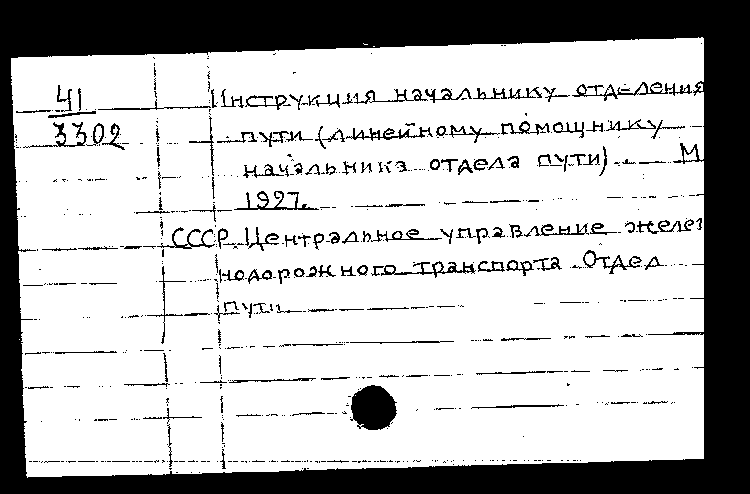 Ч1
3302
Инструкция начальнику отделения
пути (линейному помощнику
начальника отдела пути). М
1927.
СССР. Центральное управление желез
нодорожного транспорта. Отдел
пути.